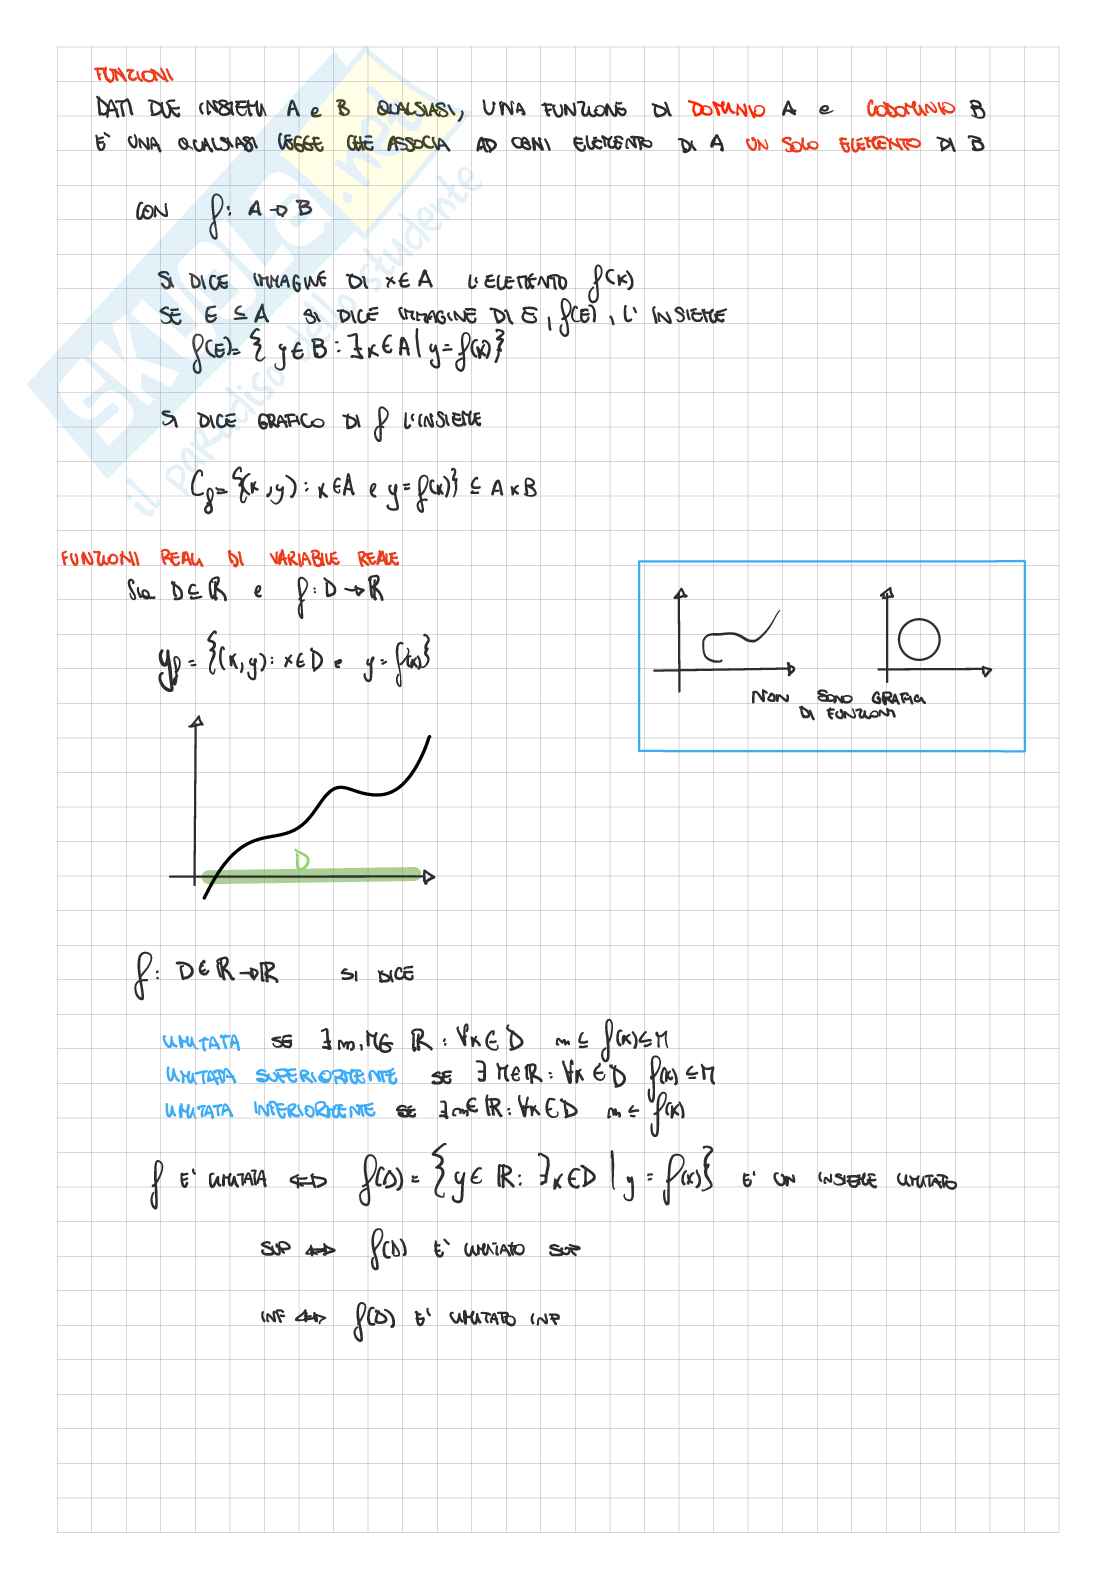 FUNZIONI
DATI DUE INSIEMI A e B QUALSIASI, UNA FUNZIONE DI DOMINIO A e CODOMINIO B
E' UNA QUALSIASI LEGGE CHE ASSOCIA AD OGNI ELEMENTO DI A UN SOLO ELEMENTO DI B
CON f: A → B
SI DICE IMMAGINE DI x ∈ A L'ELEMENTO f(x)
SE E ⊆ A SI DICE IMMAGINE DI E, f(E), L'INSIEME
f(E) = { y ∈ B : ∃ x ∈ A | y = f(x) }
SI DICE GRAFICO DI f L'INSIEME
C_f = {(x,y) : x ∈ A e y = f(x)} ⊆ A x B
FUNZIONI REALI DI VARIABILE REALE
Sia D ⊆ ℝ e f: D → ℝ
y_f = {(x,y) : x ∈ D e y = f(x)}
NON SONO GRAFICI
DI FUNZIONI
D
f: D ∈ ℝ → ℝ SI DICE
LIMITATA SE ∃ m, M ∈ ℝ : ∀x ∈ D m ≤ f(x) ≤ M
LIMITATA SUPERIORMENTE SE ∃ M ∈ ℝ : ∀x ∈ D f(x) ≤ M
LIMITATA INFERIORMENTE SE ∃ m ∈ ℝ : ∀x ∈ D m ≤ f(x)
f E' LIMITATA ⇔ f(D) = { y ∈ ℝ : ∃ x ∈ D | y = f(x) } E' UN INSIEME LIMITATO
SUP ⇔ f(D) E' LIMITATO SUP
INF ⇔ f(D) E' LIMITATO INF
SKUOLA.net
il paradiso dello studente